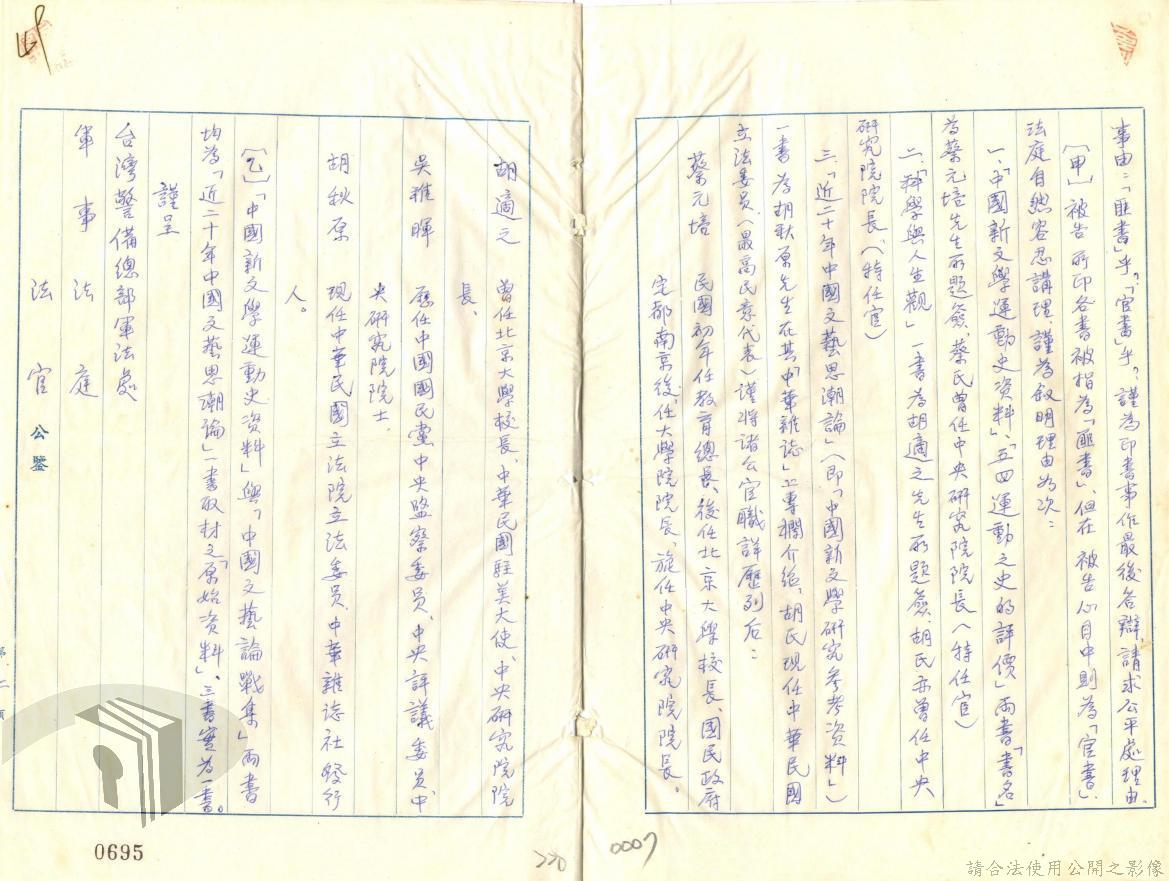 事由：「匪書」乎？「官書」乎？謹為印書事作最後答辯，請求公平處理由。
〔甲〕被告所印各書被指為「匪書」、但在被告心目中則為「官書」、
法庭自然容忍講理、謹為叙明理由如次：
一、「中國新文學運動史資料」、「五四運動之史的評價」兩書「書名」
為蔡元培先生所題簽、蔡氏曾任中央研究院院長（特任官）
二、「科學與人生觀」一書為胡適之先生所題簽、胡氏亦曾任中央
研究院院長（特任官）
三、「近二十年中國文藝思潮論」（即「中國新文學研究參考資料」）
一書為胡秋原先生在其「中華雜誌」上專欄介紹、胡氏現任中華民國
立法委員、（最高民意代表）謹將諸公官職詳歷列后：
蔡元培 民國初年任教育總長、後任北京大學校長、國民政府
定都南京後、任大學院院長、旋任中央研究院院長。
0007
胡適之 曾任北京大學校長、中華民國駐美大使、中央研究院院
長、
吳稚暉 歷任中國國民黨中央監察委員、中央評議委員、中
央研究院院士、
胡秋原 現任中華民國立法院立法委員、中華雜誌社發行
人。
〔乙〕「中國新文學運動史資料」與「中國文藝論戰集」兩書
均為「近二十年中國文藝思潮論」一書取材之「原始資料」、三書實為一書。
謹呈
台灣警備總部軍法處
軍事法庭
法官 公鑒
第二頁
0695
220
請合法使用公開之影像